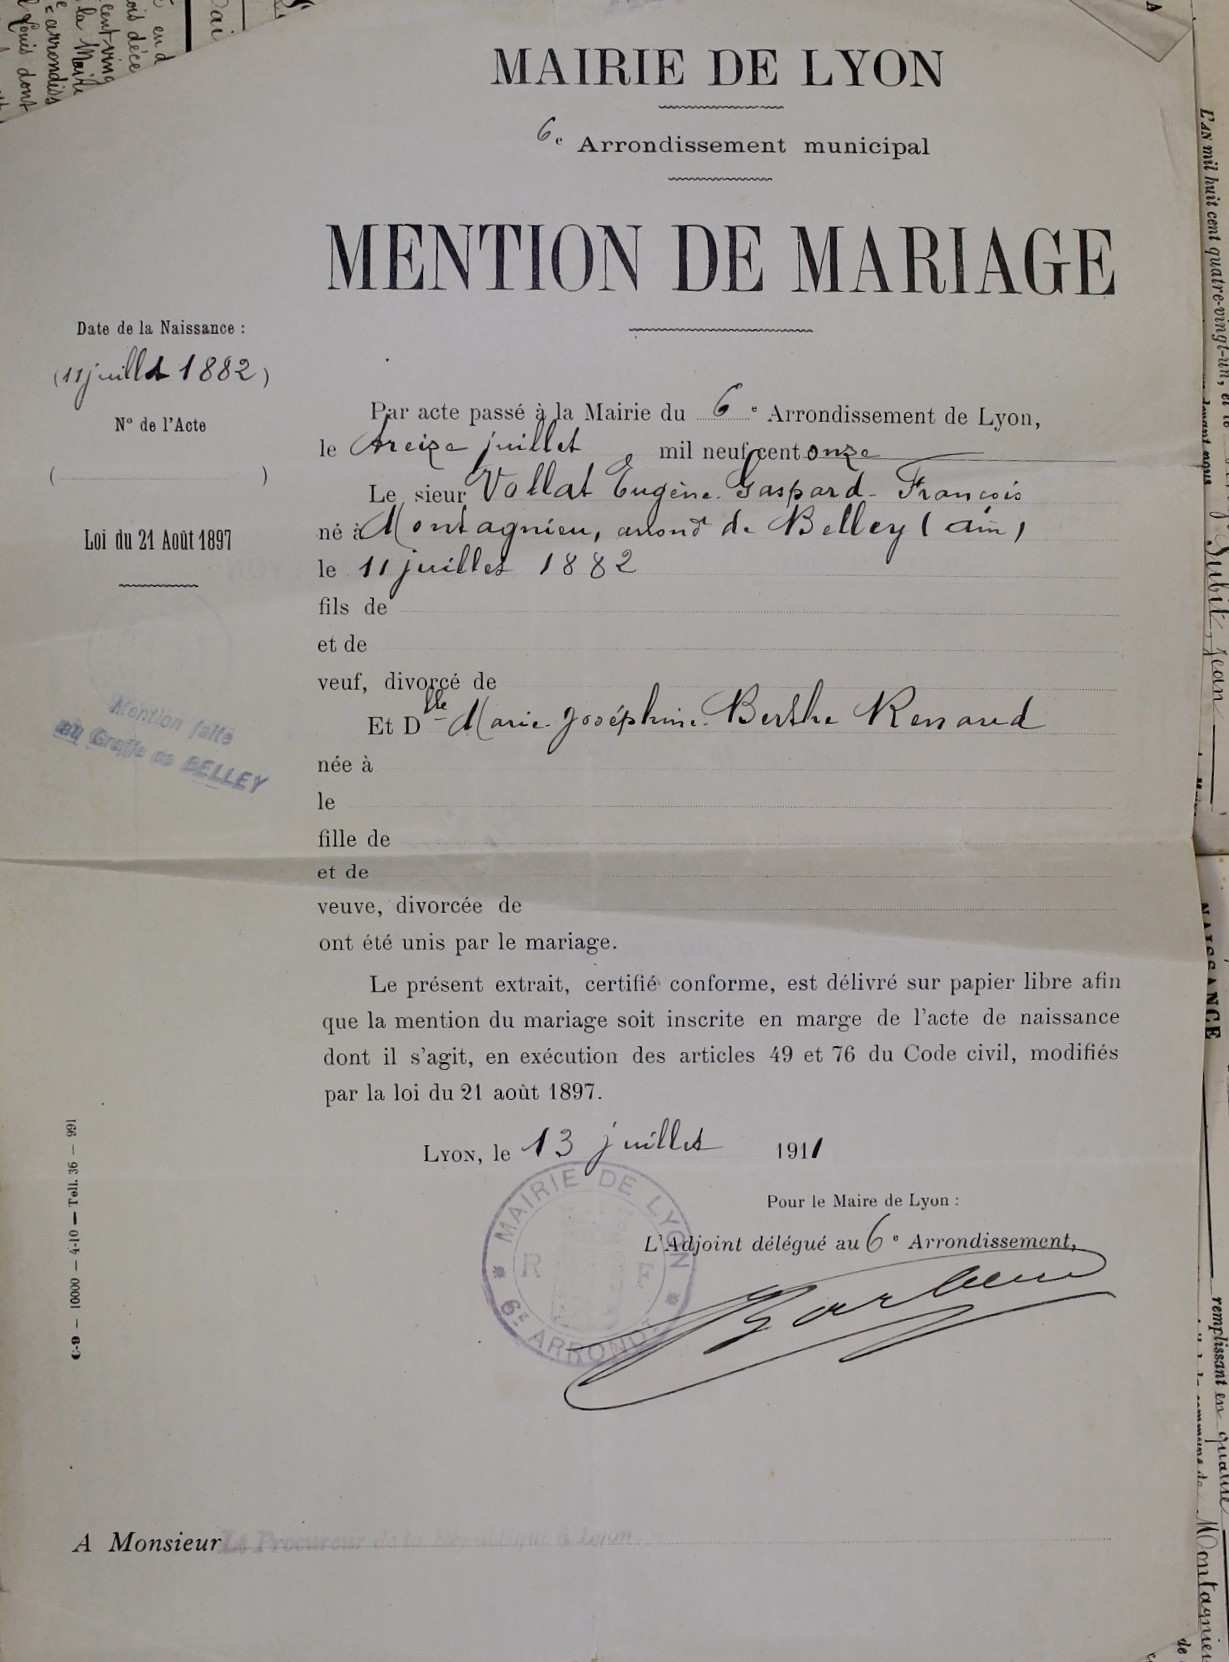 MAIRIE DE LYON
6e Arrondissement municipal
MENTION DE MARIAGE
Date de la Naissance :
(11 juillet 1882)
N° de l'Acte
( )
Loi du 21 Août 1897
Mention faite
au Greffe de BELLEY
Par acte passé à la Mairie du 6e Arrondissement de Lyon,
le treize juillet mil neuf cent onze
Le sieur Vollat Eugène Gaspard François
né à Montagnieu, arrond^t de Belley (ain)
le 11 juillet 1882
fils de
et de
veuf, divorcé de
Et Dlle Marie Joséphine Berthe Renaud
née à
le
fille de
et de
veuve, divorcée de
ont été unis par le mariage.
Le présent extrait, certifié conforme, est délivré sur papier libre afin
que la mention du mariage soit inscrite en marge de l'acte de naissance
dont il s'agit, en exécution des articles 49 et 76 du Code civil, modifiés
par la loi du 21 août 1897.
Lyon, le 13 juillet 1911
Pour le Maire de Lyon :
L'Adjoint délégué au 6e Arrondissement,
MAIRIE DE LYON
R F
6E ARRONDT
10000 — 4-10 — Tell. 36 — 991
A Monsieur Le Procureur de la République à Lyon
L'AN mil huit cent quatre-vingt-un,
Jean
NAISSANCE
remplissant en qualité
Montagnieu